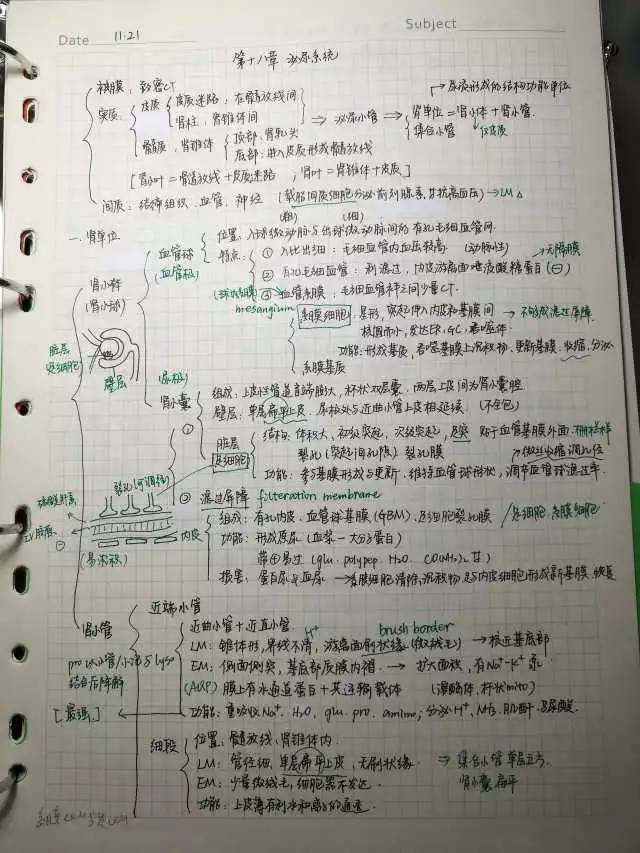 Date 11.21 Subject
第十八章 泌尿系统
被膜，致密CT
→尿液形成的结构功能单位
实质：皮质 皮质迷路，在髓放线间
肾柱，肾锥体间
⇒ 泌尿小管 ⇒ 肾单位=肾小体+肾小管
集合小管
髓质，肾锥体 顶部：肾乳头
底部：进入皮质形成髓放线
[肾小叶=髓放线+皮质迷路 ；肾叶=肾锥体+皮质]
间质：结缔组织、血管、神经
一.肾单位
血管球 位置：入球微动脉与出球微动脉间的有孔毛细血管网.
(血管极) 特点： ① 入比出细：毛细血管内血压较高
② 有孔毛细血管：利滤过，内皮游离面唾液酸糖蛋白(-)
肾小体
(肾小球)
③ 血管系膜：毛细血管袢之间少量CT.
mesangium
系膜细胞 星形，突起伸入内皮和基膜间
核圆而小，发达ER，GC，吞噬体
功能：形成基质，吞噬基膜上沉积物，更新基膜，收缩，分泌
系膜基质
脏层
足细胞
壁层
(尿极)
肾小囊
①
组成：上皮性管道盲端膨大，杯状双层囊，两层上皮间为肾小囊腔
壁层：单层扁平上皮，尿极处与近曲小管上皮相延续.
脏层
足细胞
结构：体积大，初级突起，次级突起，足突 贴于血管基膜外面
裂孔(突起间孔隙) 裂孔膜
功能：参与基膜形成与更新，维持血管球形状，调节血管球滤过率
裂孔
② 滤过屏障 filteration membrane
组成：有孔内皮、血管球基膜(GBM)、足细胞裂孔膜
功能：形成原尿(血浆-大分子蛋白)
带⊕易过 (glu. polypep. H₂O.
损害：蛋白尿与血尿
内皮
(易沉积)
肾小管
近端小管
近曲小管+近直小管
H⁺ brush border
LM：锥体形，界线不清，游离面刷状缘(微绒毛) → 核近基底部
EM：侧面侧突，基底部质膜内褶 → 扩大面积，有Na⁺-K⁺泵
(AQP) 膜上有水通道蛋白+其运输载体
[最强]
功能：重吸收Na⁺. H₂O. glu. pro. amino；分泌H⁺，NH₃，肌酐，尿酸
细段
位置：髓放线，肾锥体内.
LM：管径细，单层扁平上皮，无刷状缘 ⇒ 集合小管单层立方
肾小囊扁平
EM：少量微绒毛，细胞器不发达.
功能：上皮薄有利水和离子的通透.